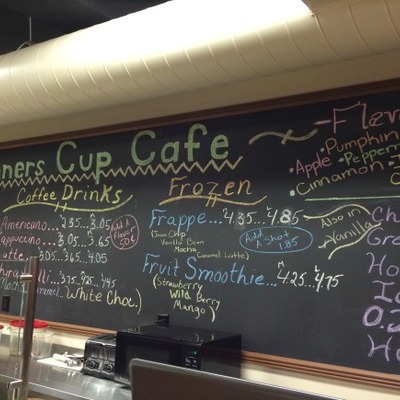 nners Cup Cafe
Coffee Drinks
Americano... 2.35... 3.05
3.05... 3.65
3.65... 4.05
3.75... 4.25...
White Choc.)
Add A Flavor 50¢
Frozen
Frappe... 4.35... 4.85
(Java Chip
Vanilla Bean
Mocha
Caramel Latte)
Add A Shot 1.85
Fruit Smoothie... 4.25... 4.75
(Strawberry
Wild Berry
Mango)
Also in Vanilla
Flav
Pumpkin
Apple • Pepperm
Cinnamon